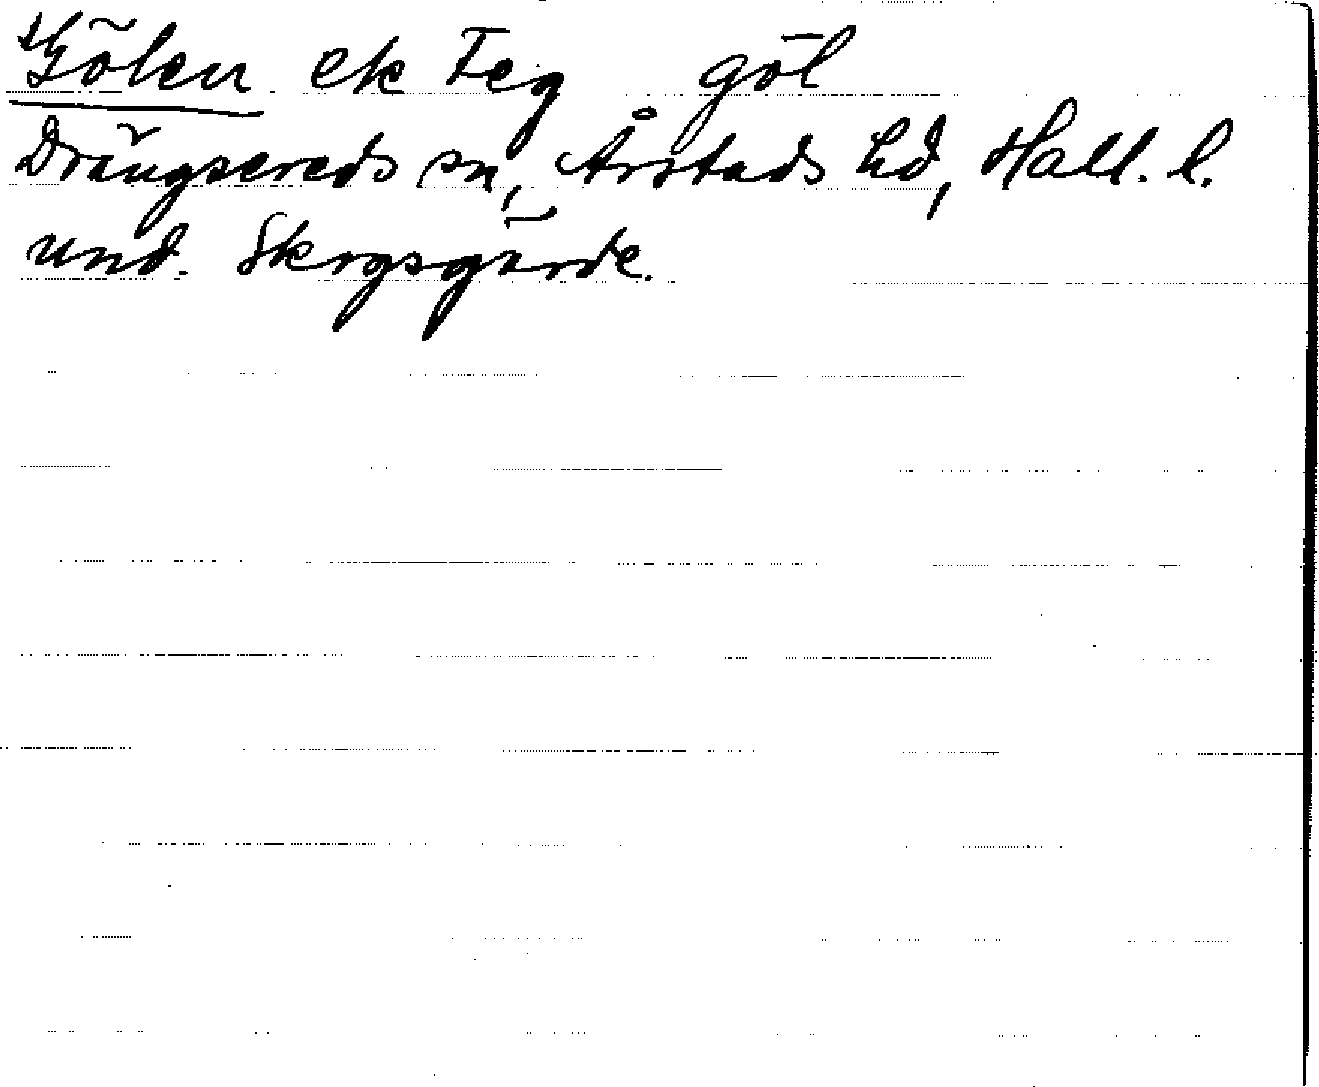 Gölen ek Feg göl
Drängsereds sn, Årstads hd, Hall. l.
und. Skogsgärde.